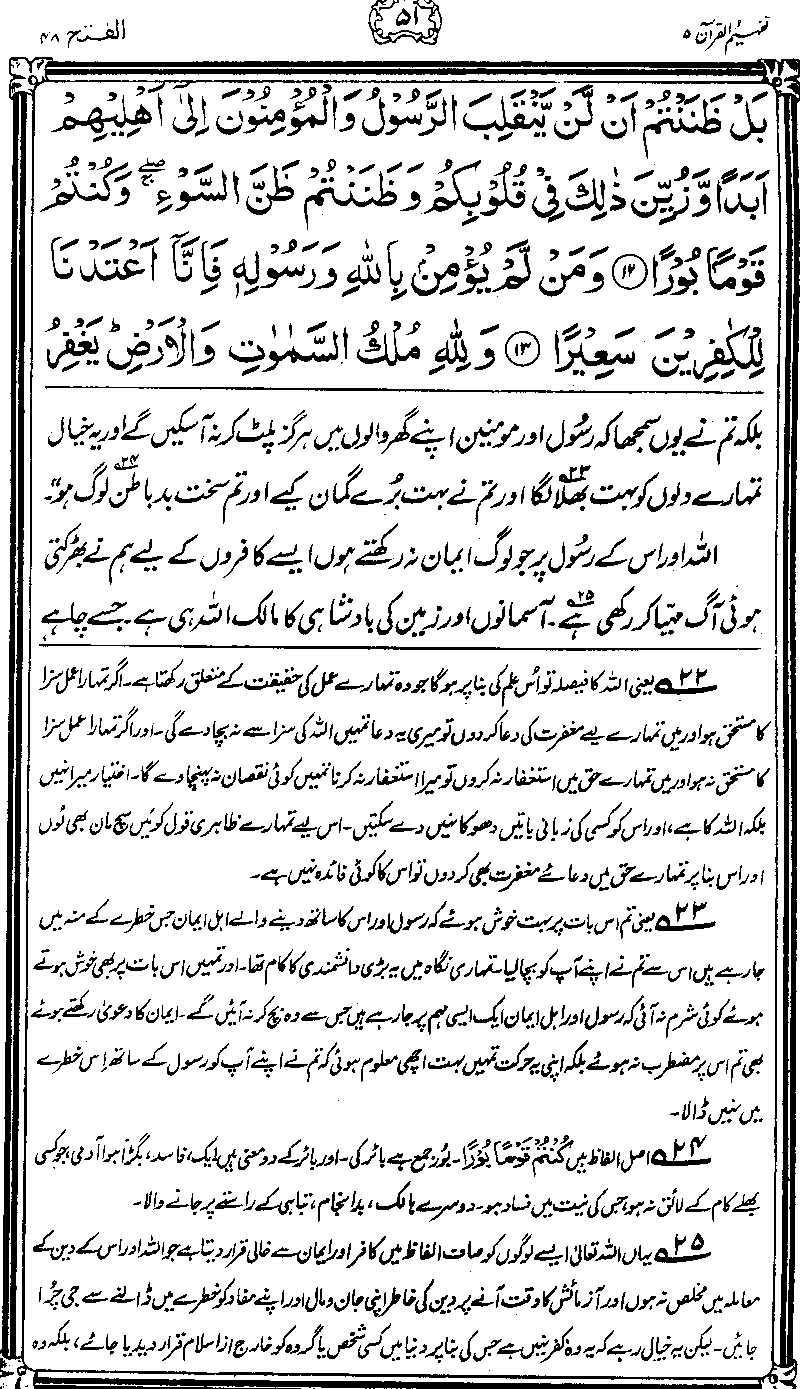 تفہیم القرآن ۵
۵۱
الفتح ۴۸
بَلْ ظَنَنْتُمْ اَنْ لَّنْ يَّنْقَلِبَ الرَّسُوْلُ وَالْمُؤْمِنُوْنَ اِلٰٓى اَهْلِيْهِمْ
اَبَدًا وَّزُيِّنَ ذٰلِكَ فِيْ قُلُوْبِكُمْ وَظَنَنْتُمْ ظَنَّ السَّوْءِ ۖۚ وَكُنْتُمْ
قَوْمًا بُوْرًا ⑫ وَمَنْ لَّمْ يُؤْمِنْۢ بِاللّٰهِ وَرَسُوْلِهٖ فَاِنَّآ اَعْتَدْنَا
لِلْكٰفِرِيْنَ سَعِيْرًا ⑬ وَلِلّٰهِ مُلْكُ السَّمٰوٰتِ وَالْاَرْضِ ؕ يَغْفِرُ
بلکہ تم نے یوں سمجھا کہ رسُول اور مومنین اپنے گھر والوں میں ہرگز پلٹ کر نہ آ سکیں گے اور یہ خیال
تمہارے دلوں کو بہت بھلا لگا۲۳ اور تم نے بہت بُرے گمان کیے اور تم سخت بد باطن لوگ ہو۲۴۔"
اللہ اور اس کے رسُول پر جو لوگ ایمان نہ رکھتے ہوں ایسے کافروں کے لیے ہم نے بھڑکتی
ہوئی آگ مہیّا کر رکھی ہے۲۵۔ آسمانوں اور زمین کی بادشاہی کا مالک اللہ ہی ہے۔ جسے چاہے
۲۲ یعنی اللہ کا فیصلہ تو اُس علم کی بنا پر ہوگا جو وہ تمہارے عمل کی حقیقت کے متعلق رکھتا ہے۔ اگر تمہارا عمل سزا
کا مستحق ہو اور میں تمہارے لیے مغفرت کی دعا کر دوں تو میری یہ دعا تمہیں اللہ کی سزا سے نہ بچا دے گی۔ اور اگر تمہارا عمل سزا
کا مستحق نہ ہو اور میں تمہارے حق میں استغفار نہ کروں تو میرا استغفار نہ کرنا تمہیں کوئی نقصان نہ پہنچا دے گا۔ اختیار میرا نہیں
بلکہ اللہ کا ہے، اور اس کو کسی کی زبانی باتیں دھوکا نہیں دے سکتیں۔ اس لیے تمہارے ظاہری قول کو میں سچ مان بھی لُوں
اور اس بنا پر تمہارے حق میں دعائے مغفرت بھی کر دوں تو اس کا کوئی فائدہ نہیں ہے۔
۲۳ یعنی تم اس بات پر بہت خوش ہوئے کہ رسول اور اس کا ساتھ دینے والے اہل ایمان جس خطرے کے منہ میں
جا رہے ہیں اس سے تم نے اپنے آپ کو بچا لیا۔ تمہاری نگاہ میں یہ بڑی دانشمندی کا کام تھا۔ اور تمہیں اس بات پر بھی خوش ہوتے
ہوئے کوئی شرم نہ آئی کہ رسول اور اہل ایمان ایک ایسی مہم پر جا رہے ہیں جس سے وہ بچ کر نہ آئیں گے۔ ایمان کا دعویٰ رکھتے ہوئے
بھی تم اس پر مضطرب نہ ہوئے بلکہ اپنی یہ حرکت تمہیں بہت اچھی معلوم ہوئی کہ تم نے اپنے آپ کو رسول کے ساتھ اِس خطرے
میں نہیں ڈالا۔
۲۴ اصل الفاظ ہیں كُنْتُمْ قَوْمًا بُوْرًا۔ بُور جمع ہے بائر کی۔ اور بائر کے دو معنی ہیں ایک، فاسد، بگڑا ہوا آدمی، جو کسی
بھلے کام کے لائق نہ ہو، جس کی نیت میں فساد ہو۔ دوسرے ہالک، بد انجام، تباہی کے راستے پر جانے والا۔
۲۵ یہاں اللہ تعالیٰ ایسے لوگوں کو صاف الفاظ میں کافر اور ایمان سے خالی قرار دیتا ہے جو اللہ اور اس کے دین کے
معاملہ میں مخلص نہ ہوں اور آزمائش کا وقت آنے پر دین کی خاطر اپنی جان و مال اور اپنے مفاد کو خطرے میں ڈالنے سے جی چُرا
جائیں۔ لیکن یہ خیال رہے کہ یہ وہ کفر نہیں ہے جس کی بنا پر دنیا میں کسی شخص یا گروہ کو خارج از اسلام قرار دیدیا جائے، بلکہ وہ